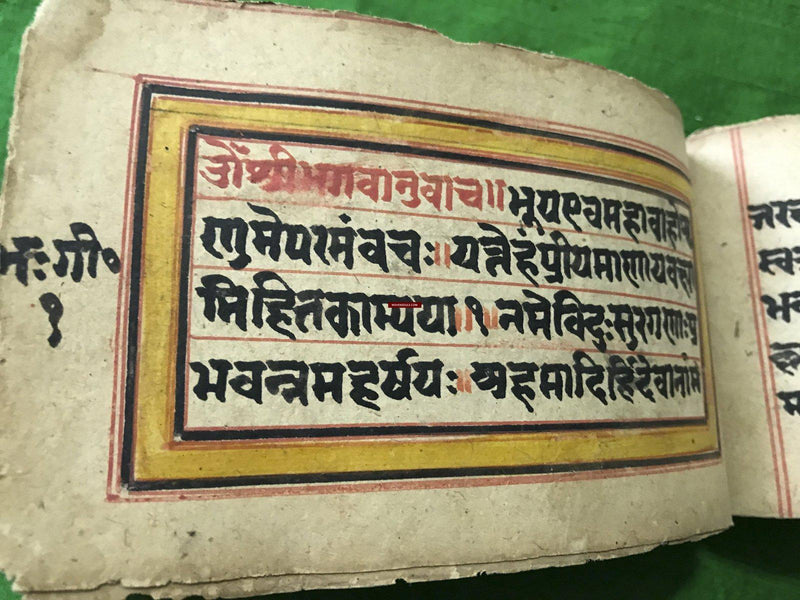 ॐश्रीभगवानुवाच॥ भूयएवमहाबाहोशृ
णुमेपरमंवचः॥ यत्तेहंप्रीयमाणायवक्ष्या
मिहितकाम्यया॥१॥ नमेविदुःसुरगणाःप्र
भवन्नमहर्षयः॥ अहमादिर्हिदेवानांम
भःगी॰
१